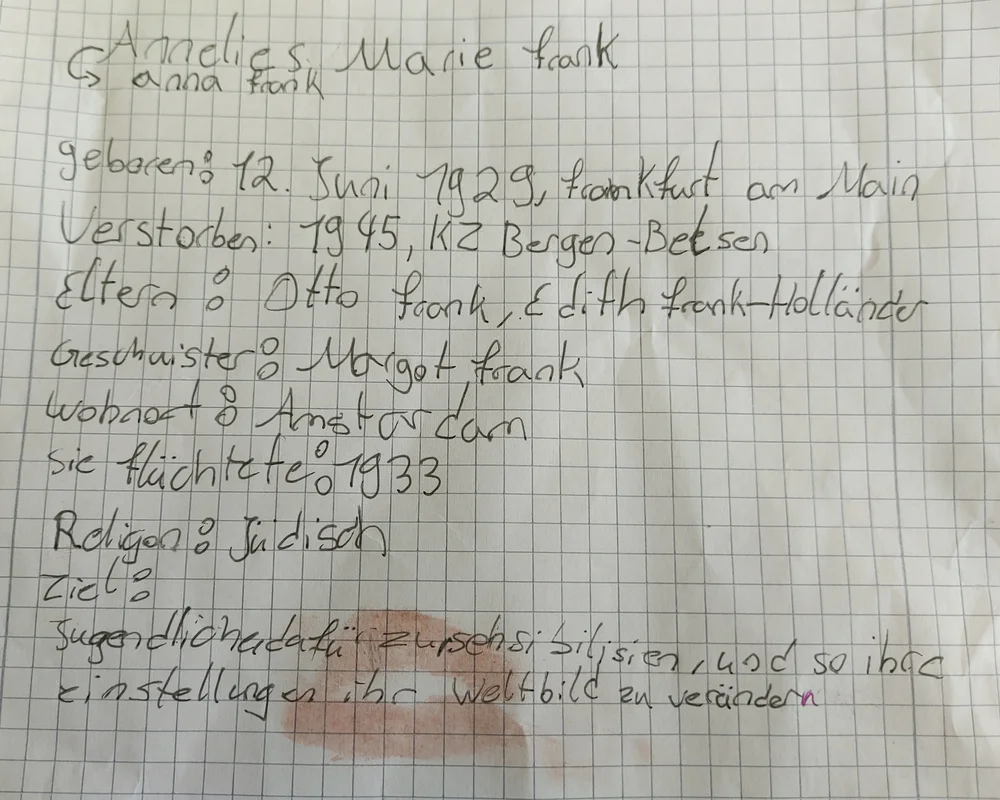 Annelies Marie frank
↳ anna frank
geboren: 12. Juni 1929, frankfurt am Main
Verstorben: 1945, KZ Bergen-Belsen
Eltern: Otto frank, Edith frank-Holländer
Geschwister: Margot frank
Wohnort: Amsterdam
sie flüchtete: 1933
Religon: Jüdisch
Ziel:
Jugendliche dafür zu und so ihre
einstellungen ihr Weltbild zu verändern